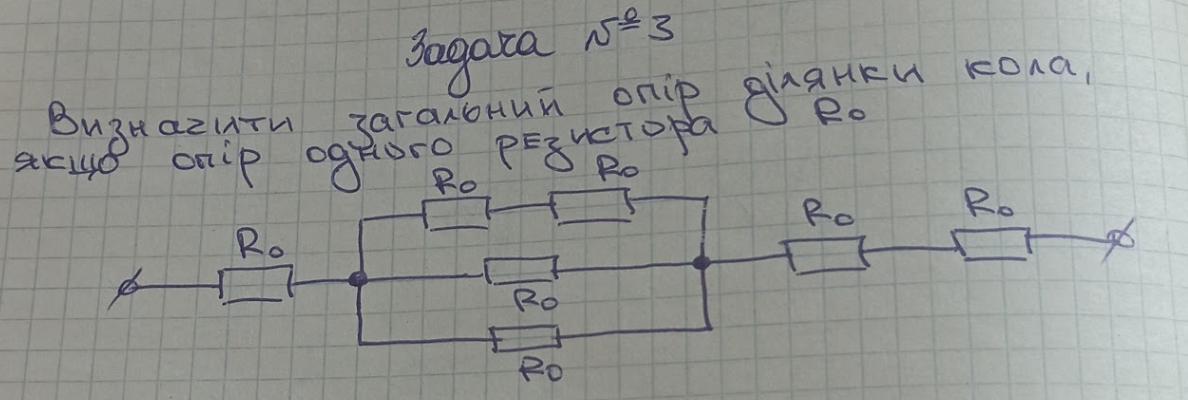 Задача №3
Визначити загальний опір ділянки кола,
якщо опір одного резистора R0
R0 R0
R0 R0 R0
R0
R0